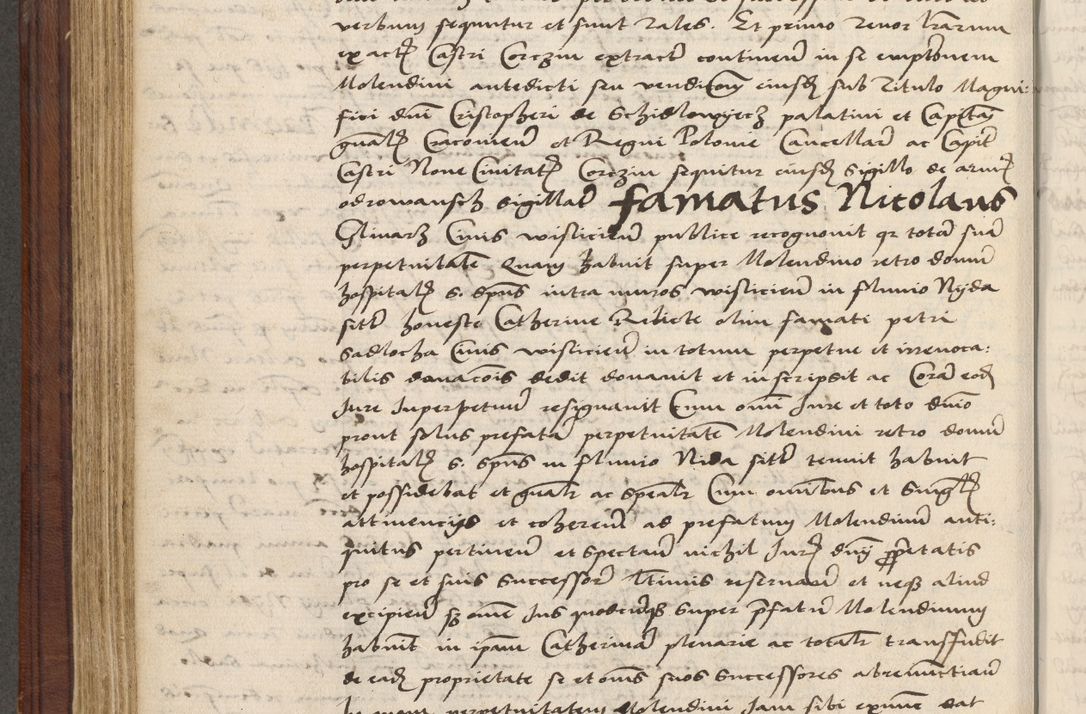 verbum sequuntur et sunt tales. Et primo tenor lrarum
ex actis Castri Corczin extract continen in se emptionem
Molendini antedicti seu venditiom eiusd sub Titulo Magni:
fici dni Cristopheri de Schidlowyecz palatini et Capitan
gnalis Cracovien et Regni Polonie Cancellar ac Capit
Castri None Civitatis Corczin sequitur eiusd sigillo de armis
odrowansch sigillat famatus Nicolaus
Glinarz Civis wislicien publice recognovit qz totam sua
perpetuitate quam habuit super Molendino retro domu
hospitalis s. spus intra muros wislicien in fluvio Nyda
sitt honeste Catherine Rebiete olim famati petri
Sadlocha Civis wislicien in totum perpetue et irrevoca:
bilis donacois dedit donavit et inscripsit ac Coram eod
Jure Inperpetuum resignavit Cum omi Jure et toto dnio
prout solus prefata perpetuitate Molendini retro domu
hospitalis s. spus in fluvio Nida sitt tenuit habuit
et possidebat et gnalr ac spealr Cum omnibus et singlis
attinencijs et coheren ad prefatum Molendinum anti:
quitus pertinen et spectan nichil Juris dnij pprietatis
pro se et suis Successor ltimis reservan et neqz aliud
excipien sz ome Jus quodcunqz super pfatu Molendinum
habuit in ipam Catherinam plenarie ac totalr transfudit
de ead proprietate se et omis suos Successores abrenunctian
perpetuitatem Molendini Jam sibi